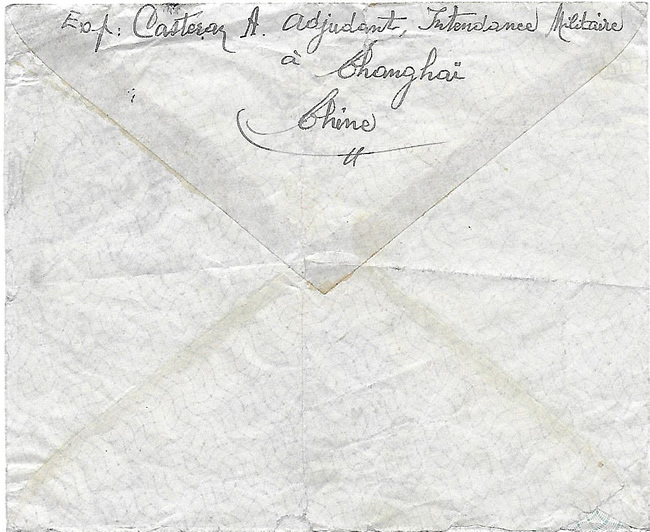 Exp: Casteran A. Adjudant, Intendance Militaire
à Changhaï
Chine